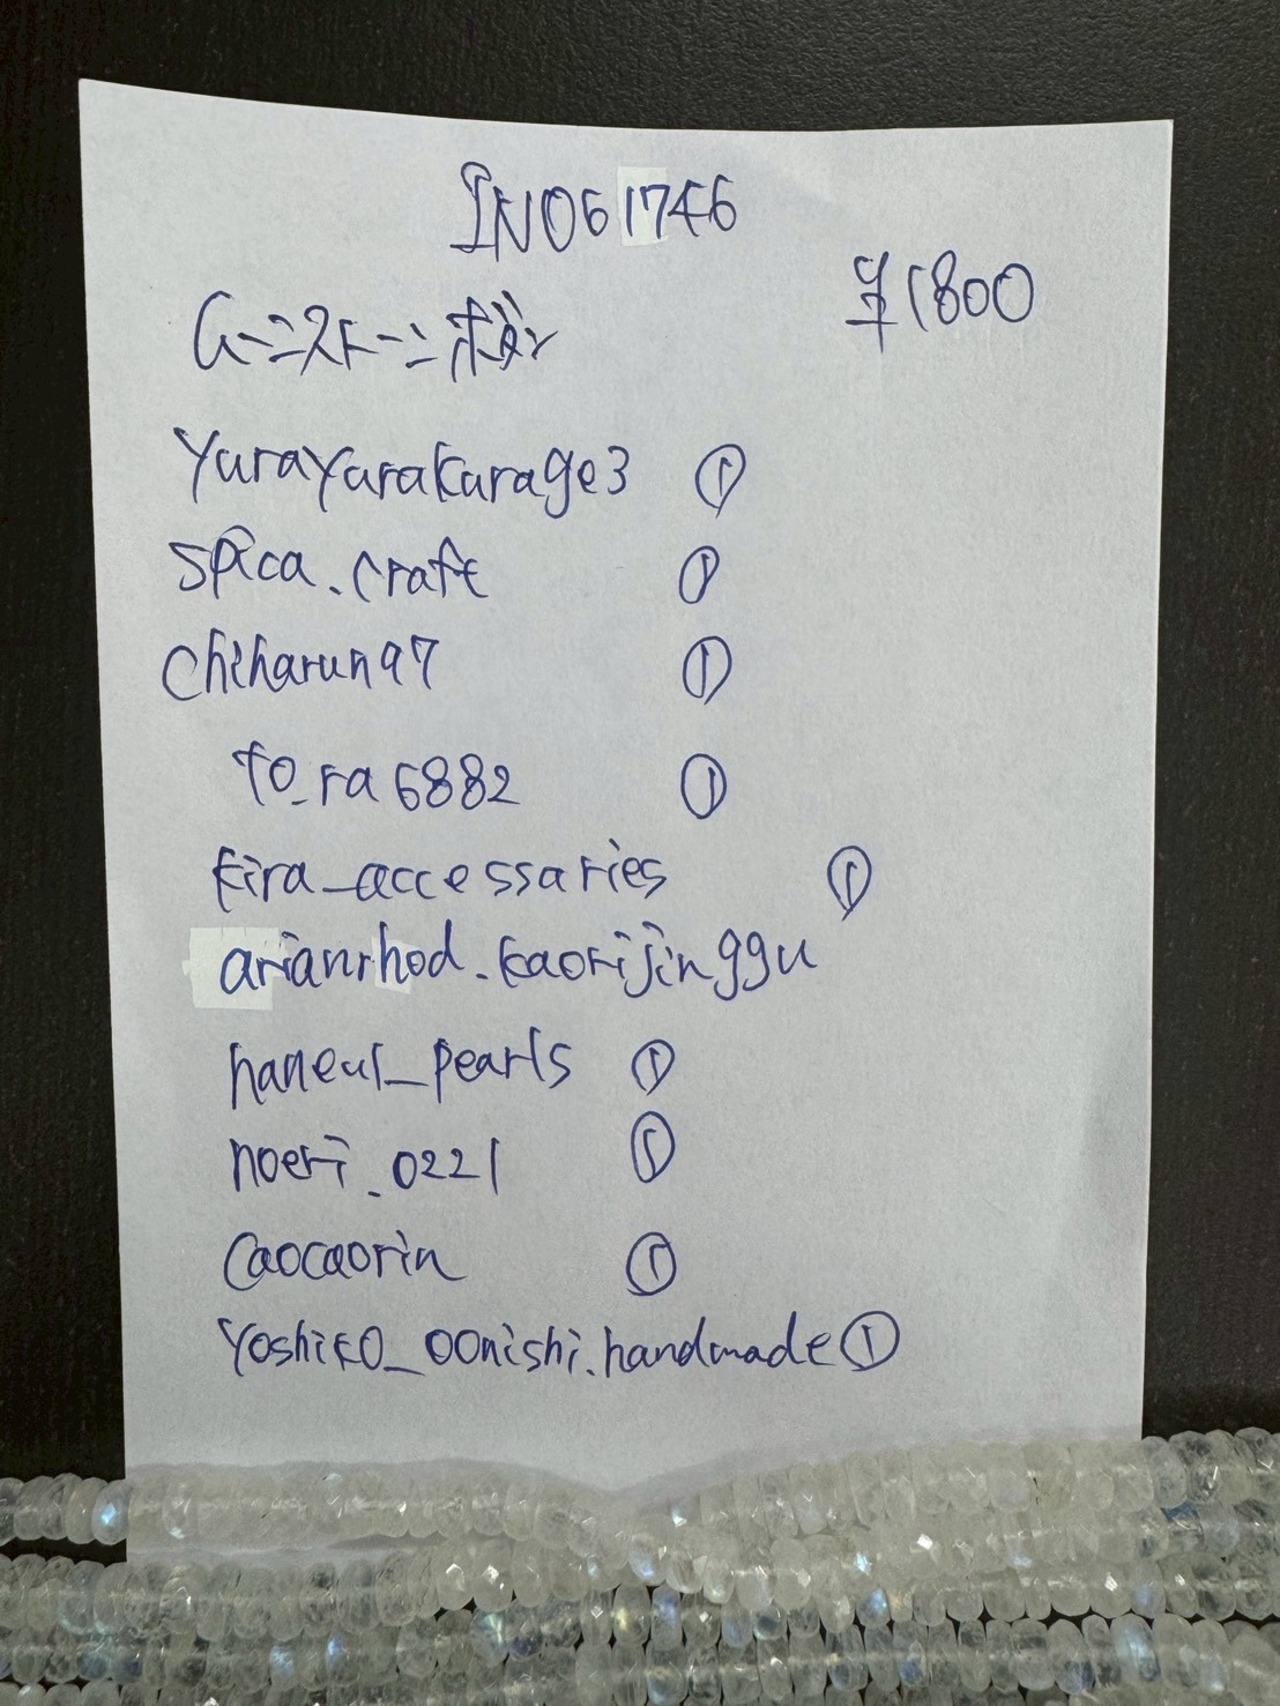 IN061746
¥1800
ムーンストーン ボタン
yurayurakurage3 ①
spica.craft ①
chiharun97 ①
to_ra6882 ①
kira_accessaries ①
arianrhod.kaorijinggu
haneul_pearls ①
noeri_0221 ①
caocaorin ①
yoshiko_oonishi.handmade ①